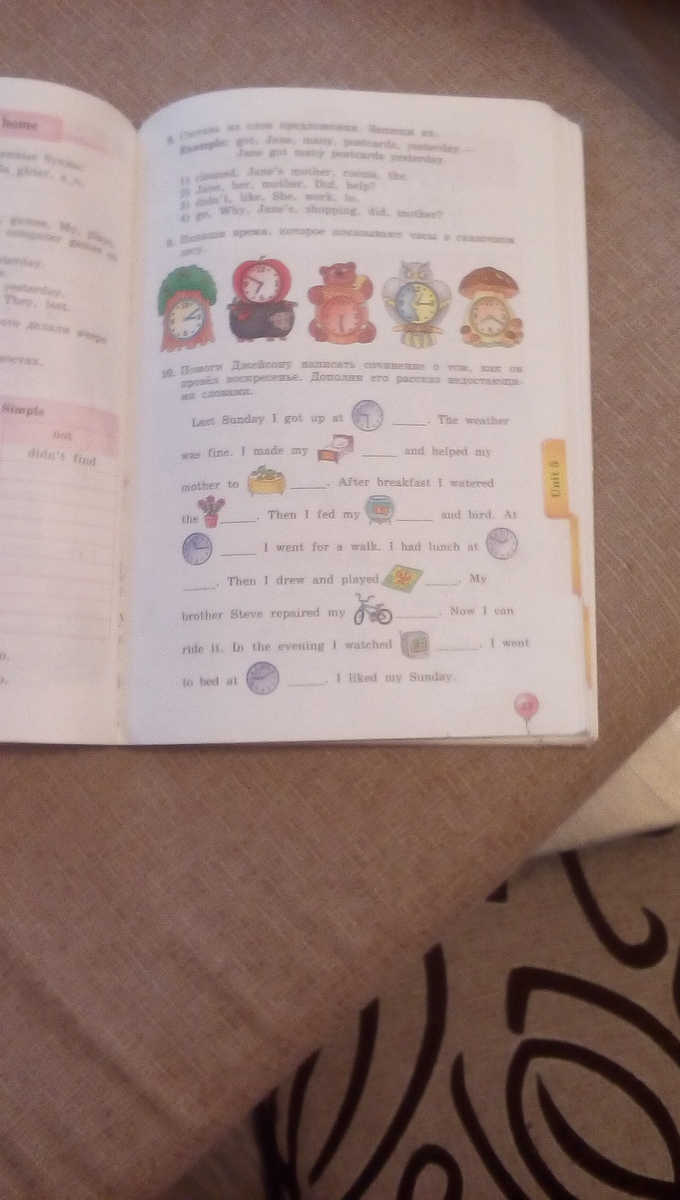 home
8. Составь из слов предложения. Запиши их.
Example: got, Jane, many, postcards, yesterday —
Jane got many postcards yesterday.
1) cleaned, Jane's mother, rooms, the.
2) Jane, her, mother, Did, help?
3) didn't, like, She, work, to.
4) go, Why, Jane's, shopping, did, mother?
9. Напиши время, которое показывают часы в сказочном
лесу.
10. Помоги Джейсону написать сочинение о том, как он
провёл воскресенье. Дополни его рассказ недостающи-
ми словами.
Last Sunday I got up at ____. The weather
was fine. I made my ____ and helped my
mother to ____. After breakfast I watered
the ____. Then I fed my ____ and bird. At
____ I went for a walk. I had lunch at
____. Then I drew and played ____. My
brother Steve repaired my ____. Now I can
ride it. In the evening I watched ____. I went
to bed at ____. I liked my Sunday.
games, My, plays,
computer games
yesterday.
They, last
что делали вчера
Simple
not
didn't find
Unit 5